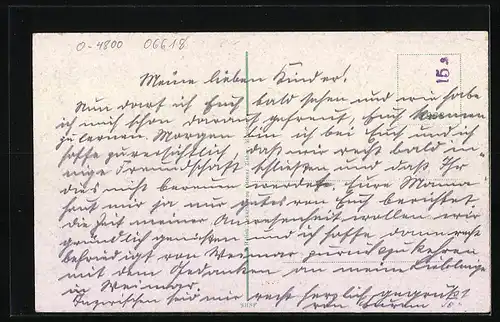 O-4800 06618
15,-
Meine lieben Kinder!
Nun darf ich Euch bald sehen und wie habe
ich mich schon darauf gefreut, Euch kennen
zu lernen. Morgen bin ich bei Euch und ich
hoffe zuversichtlich, daß wir recht bald in-
nige Freundschaft schließen und daß Ihr
das nicht bereuen werdet. Eure Mama
hat mir ja nur gutes von Euch berichtet
die Zeit meiner Anwesenheit wollen wir
gründlich genießen und ich hoffe dann recht
befriedigt von Weimar zurückzukehren
mit dem Gedanken an meine Lieblinge
in Weimar.
Inzwischen seid mir recht herzlich gegrüßt
von Eurem